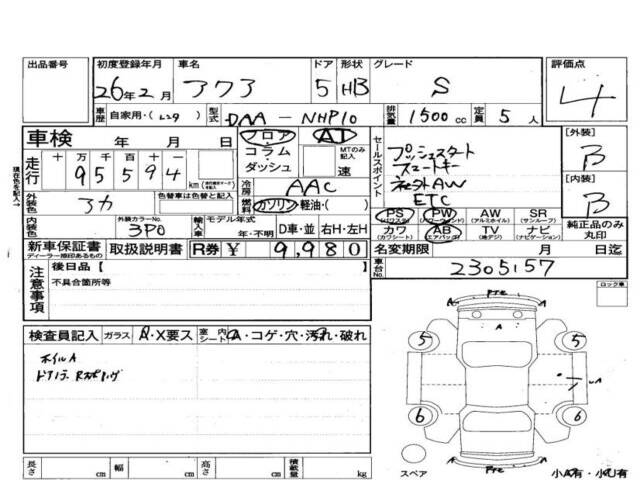 出品番号 初度登録年月 車名 ドア 形状 グレード 評価点
26年2月 アクア 5 HB S 4
車歴 自家用・(レンタ) 型式 DAA-NHP10 排気量 1500cc 定員 5人
車検 年 月 日
フロア AT
コラム・ダッシュ
MTのみ記入
速
セールスポイント
プッシュスタート
スマートキー
社外AW
ETC
[外装] B
[内装] B
純正品のみ丸印
走行 十 万 千 百 十
95594 km
現在色を記入→
外装色 アカ 色替車は色替と記入
冷房 AAC
燃料 ガソリン・軽油・( )
PS PW AW SR
(パワステ) (パワーウィンド) (アルミホイル) (サンルーフ)
カワ AB TV ナビ
(カワシート) (エアバッグ) (地デジ) (ナビゲーション)
内装色 外装カラーNo. 3P0
輸入車 モデル年式 年・不明 D車・並 右H・左H
新車保証書 取扱説明書 R券 ¥ 9,980
ディーラー捺印あるもの
名変期限 月 日迄
車台No. 2305157
注意事項 後日品【 】
不具合箇所等
ロック車
検査員記入 ガラス A・X要ス 室内シート A・コゲ・穴・汚れ・破れ
ホイルA
長さ cm 幅 cm 高さ cm 積載量 kg
スペア
5 5
6 6
A A A
小A有・小U有